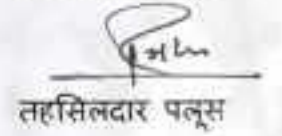 तहसिलदार पलूस